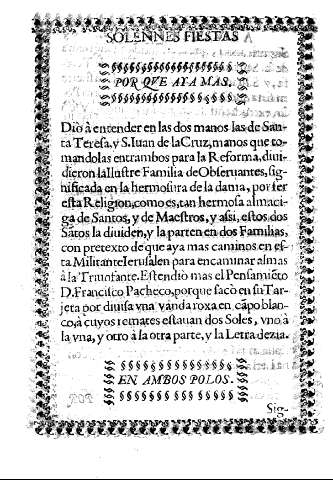 SOLENNES FIESTAS
POR QUE AYA MAS.
Diò à entender en las dos manos las de San-
ta Teresa, y S. Iuan de la Cruz, manos que to-
mandolas entrambos para la Reforma, diui-
dieron la Ilustre Familia de Obseruantes, sig-
nificada en la hermosura de la dama, por ser
esta Religion, como es, tan hermosa almaci-
ga de Santos, y de Maestros, y assi, estos dos
Sãtos la diuiden, y la parten en dos Familias,
con pretexto de que aya mas caminos en es-
ta Militante Ierusalen para encaminar almas
à la Triunfante. Estendiò mas el Pensamiẽto
D. Francisco Pacheco, porque sacò en su Tar-
jeta por diuisa vna vanda roxa en cãpo blan-
co, à cuyos remates estauan dos Soles, vno à
la vna, y otro à la otra parte, y la Letra dezia.
EN AMBOS POLOS.
Sig-